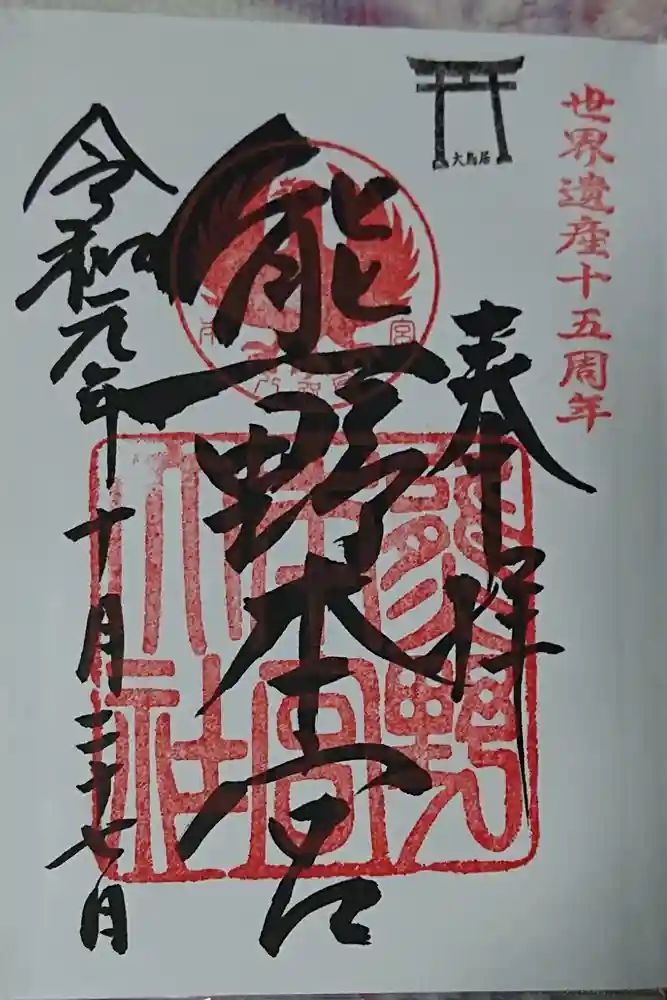 世界遺産十五周年
大鳥居
奉拝
熊野本宮
熊野
本宮
大社
令和元年十月二十七日